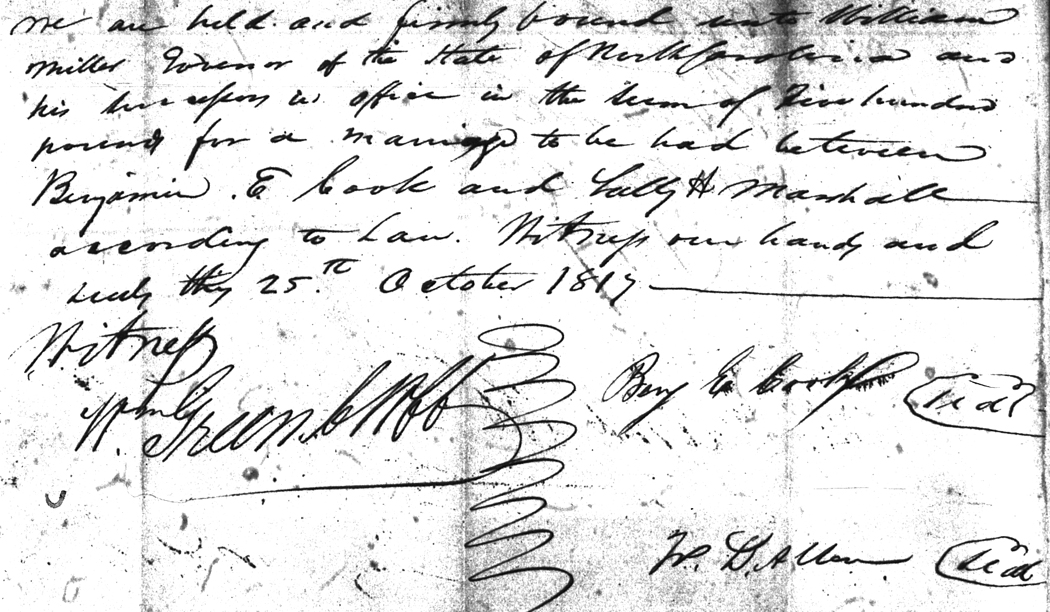 we are held and firmly bound unto William
Miller Govenor of the State of North Carolina and
his successors in office in the sum of Five hundred
pounds for a marriage to be had between
Benjamin E Cook and Sally H Marshall
according to Law. Witness our hands and
seals this 25.th October 1817
Witness
Wm Green CWCC
Benj E Cook
Seal
W. D. Allen
Seal